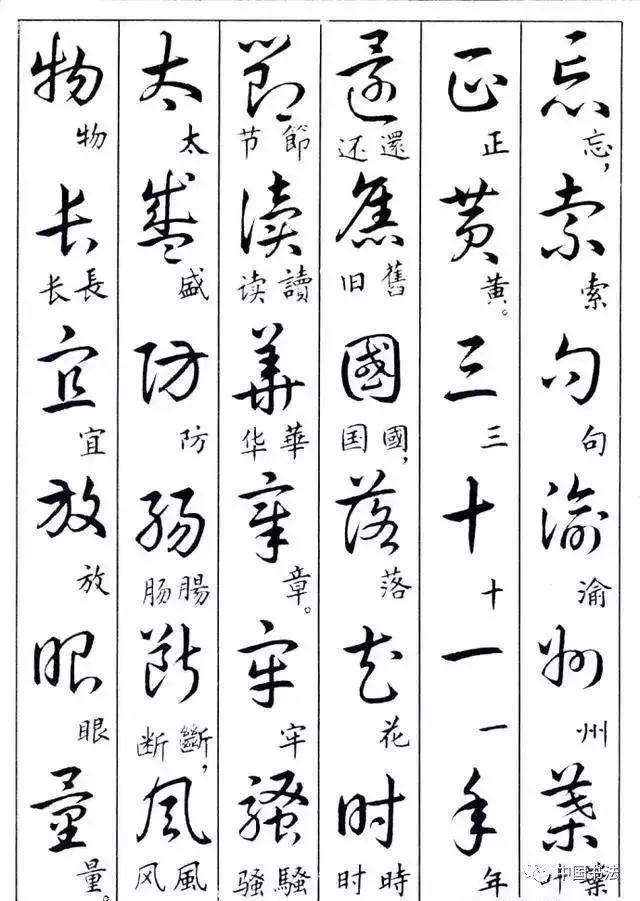 忘索句渝州葉
忘，索句渝州叶葉
正黄三十一年
正黄。三十一年
還舊國落花时
还還旧舊国國，落花时時
節讀華章牢騷
节節读讀华華章。牢骚騷
太盛防腸斷風
太盛防肠腸断斷，风風
物长宜放眼量
物长長宜放眼量。
中国书法